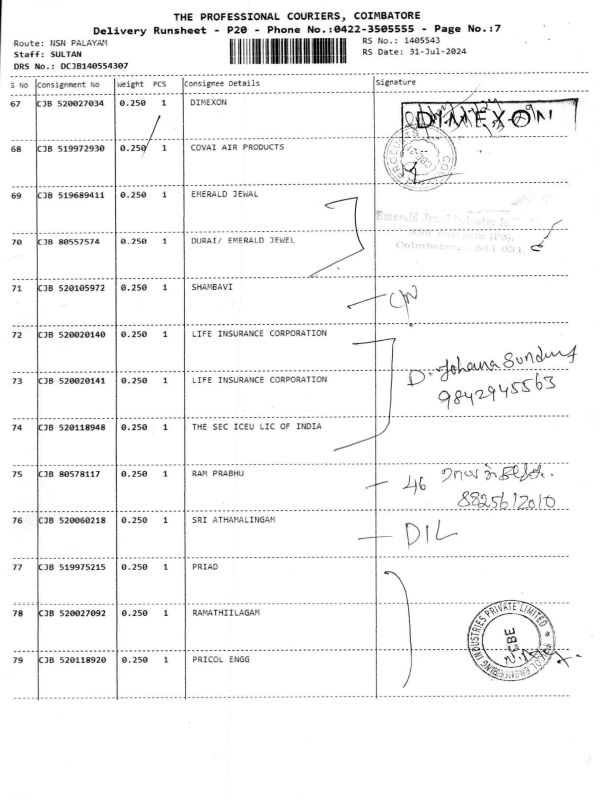 THE PROFESSIONAL COURIERS, COIMBATORE
Delivery Runsheet - P20 - Phone No.:0422-3505555 - Page No.:7
Route: NSN PALAYAM
RS No.: 1405543
Staff: SULTAN
RS Date: 31-Jul-2024
DRS No.: DCJB140554307
S No Consignment No Weight PCS Consignee Details Signature
67 CJB 520027034 0.250 1 DIMEXON
DIMEXON
68 CJB 519972930 0.250 1 COVAI AIR PRODUCTS
69 CJB 519689411 0.250 1 EMERALD JEWAL
Emerald Jewel Industry
70 CJB 80557574 0.250 1 DURAI/ EMERALD JEWEL
Coimbatore - 641 031.
71 CJB 520105972 0.250 1 SHAMBAVI
72 CJB 520020140 0.250 1 LIFE INSURANCE CORPORATION
73 CJB 520020141 0.250 1 LIFE INSURANCE CORPORATION
9842945563
74 CJB 520118948 0.250 1 THE SEC ICEU LIC OF INDIA
75 CJB 80578117 0.250 1 RAM PRABHU
46
8825612010
76 CJB 520060218 0.250 1 SRI ATHAMALINGAM
DIL
77 CJB 519975215 0.250 1 PRIAD
78 CJB 520027092 0.250 1 RAMATHIILAGAM
79 CJB 520118920 0.250 1 PRICOL ENGG
PRICOL ENGINEERING INDUSTRIES PRIVATE LIMITED
CBE